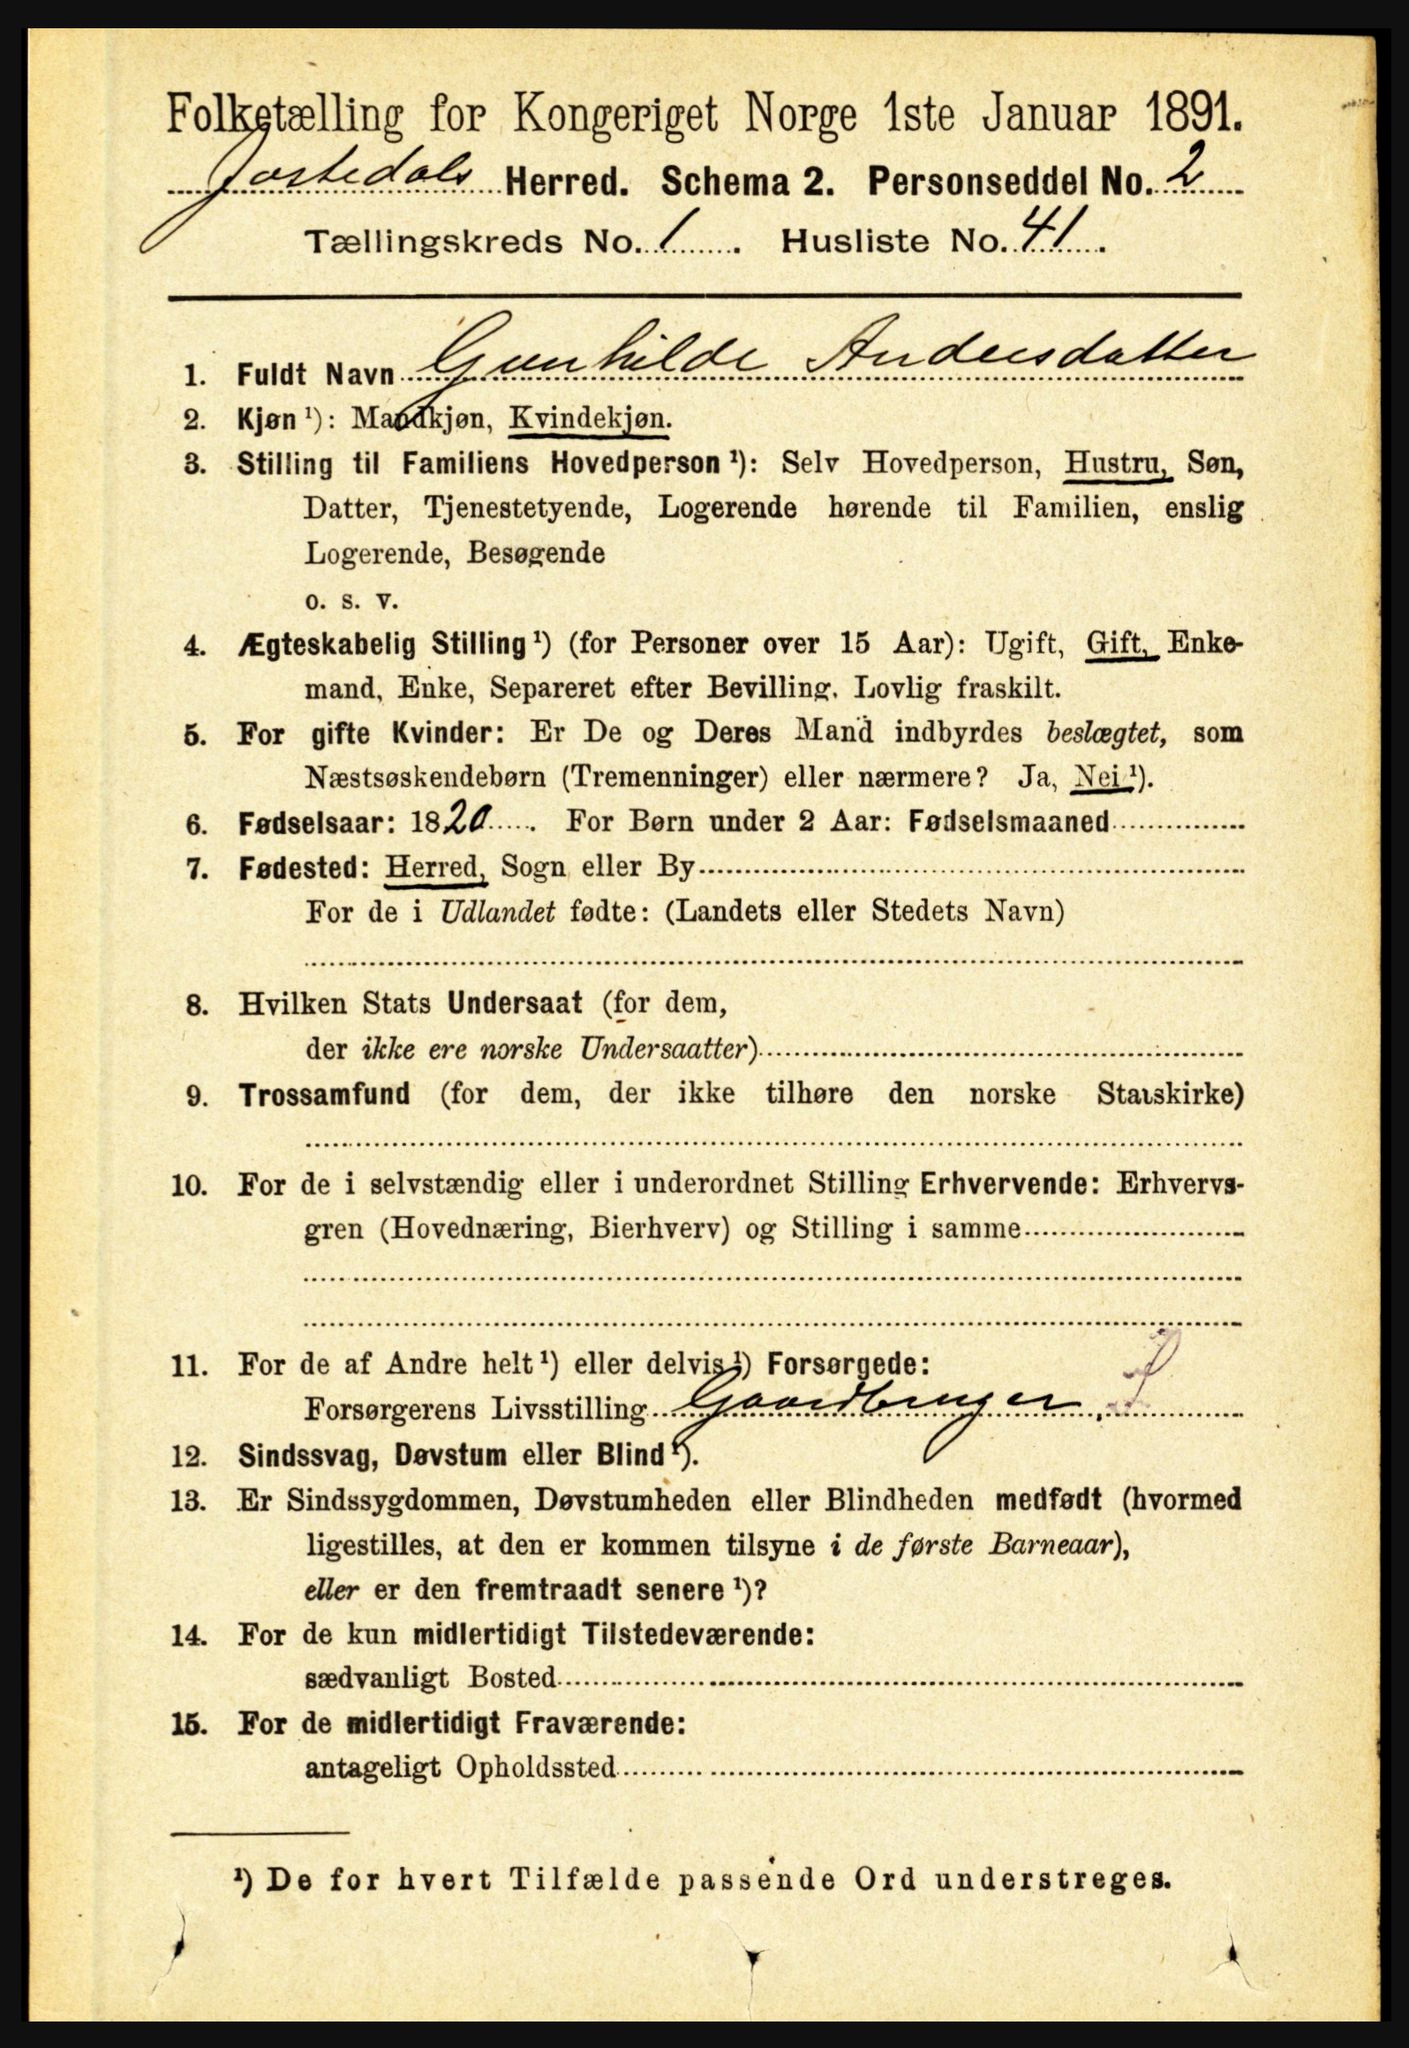 Folketælling for Kongeriget Norge 1ste Januar 1891.
Jostedals Herred. Schema 2. Personseddel No. 2
Tællingskreds No. 1. Husliste No. 41.
1. Fuldt Navn Gunhilde Andersdatter
2. Kjøn ¹): Mandkjøn, Kvindekjøn.
3. Stilling til Familiens Hovedperson ¹): Selv Hovedperson, Hustru, Søn,
Datter, Tjenestetyende, Logerende hørende til Familien, enslig
Logerende, Besøgende
o. s. v.
4. Ægteskabelig Stilling ¹) (for Personer over 15 Aar): Ugift, Gift, Enke-
mand, Enke, Separeret efter Bevilling, Lovlig fraskilt.
5. For gifte Kvinder: Er De og Deres Mand indbyrdes beslægtet, som
Næstsøskendebørn (Tremenninger) eller nærmere? Ja, Nei ¹).
6. Fødselsaar: 1820. For Børn under 2 Aar: Fødselsmaaned
7. Fødested: Herred, Sogn eller By
For de i Udlandet fødte: (Landets eller Stedets Navn)
8. Hvilken Stats Undersaat (for dem,
der ikke ere norske Undersaatter)
9. Trossamfund (for dem, der ikke tilhøre den norske Statskirke)
10. For de i selvstændig eller i underordnet Stilling Erhvervende: Erhvervs-
gren (Hovednæring, Bierhverv) og Stilling i samme
11. For de af Andre helt ¹) eller delvis ¹) Forsørgede:
Forsørgerens Livsstilling Gaardbruger.
12. Sindssvag, Døvstum eller Blind ¹).
13. Er Sindssygdommen, Døvstumheden eller Blindheden medfødt (hvormed
ligestilles, at den er kommen tilsyne i de første Barneaar),
eller er den fremtraadt senere ¹)?
14. For de kun midlertidigt Tilstedeværende:
sædvanligt Bosted
15. For de midlertidigt Fraværende:
antageligt Opholdssted
¹) De for hvert Tilfælde passende Ord understreges.